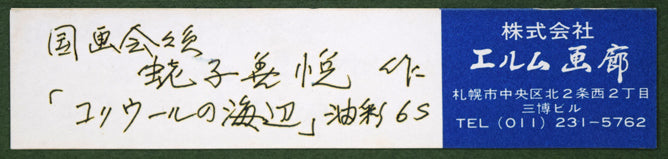 国画会々員
蛯子善悦 作
「コリウールの海辺」油彩 6S
株式会社
エルム画廊
札幌市中央区北2条西2丁目
三博ビル
TEL (011) 231-5762